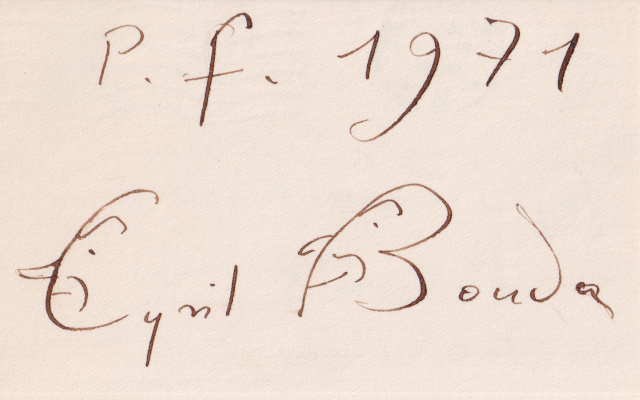 P. f. 1971
Cyril Bouda